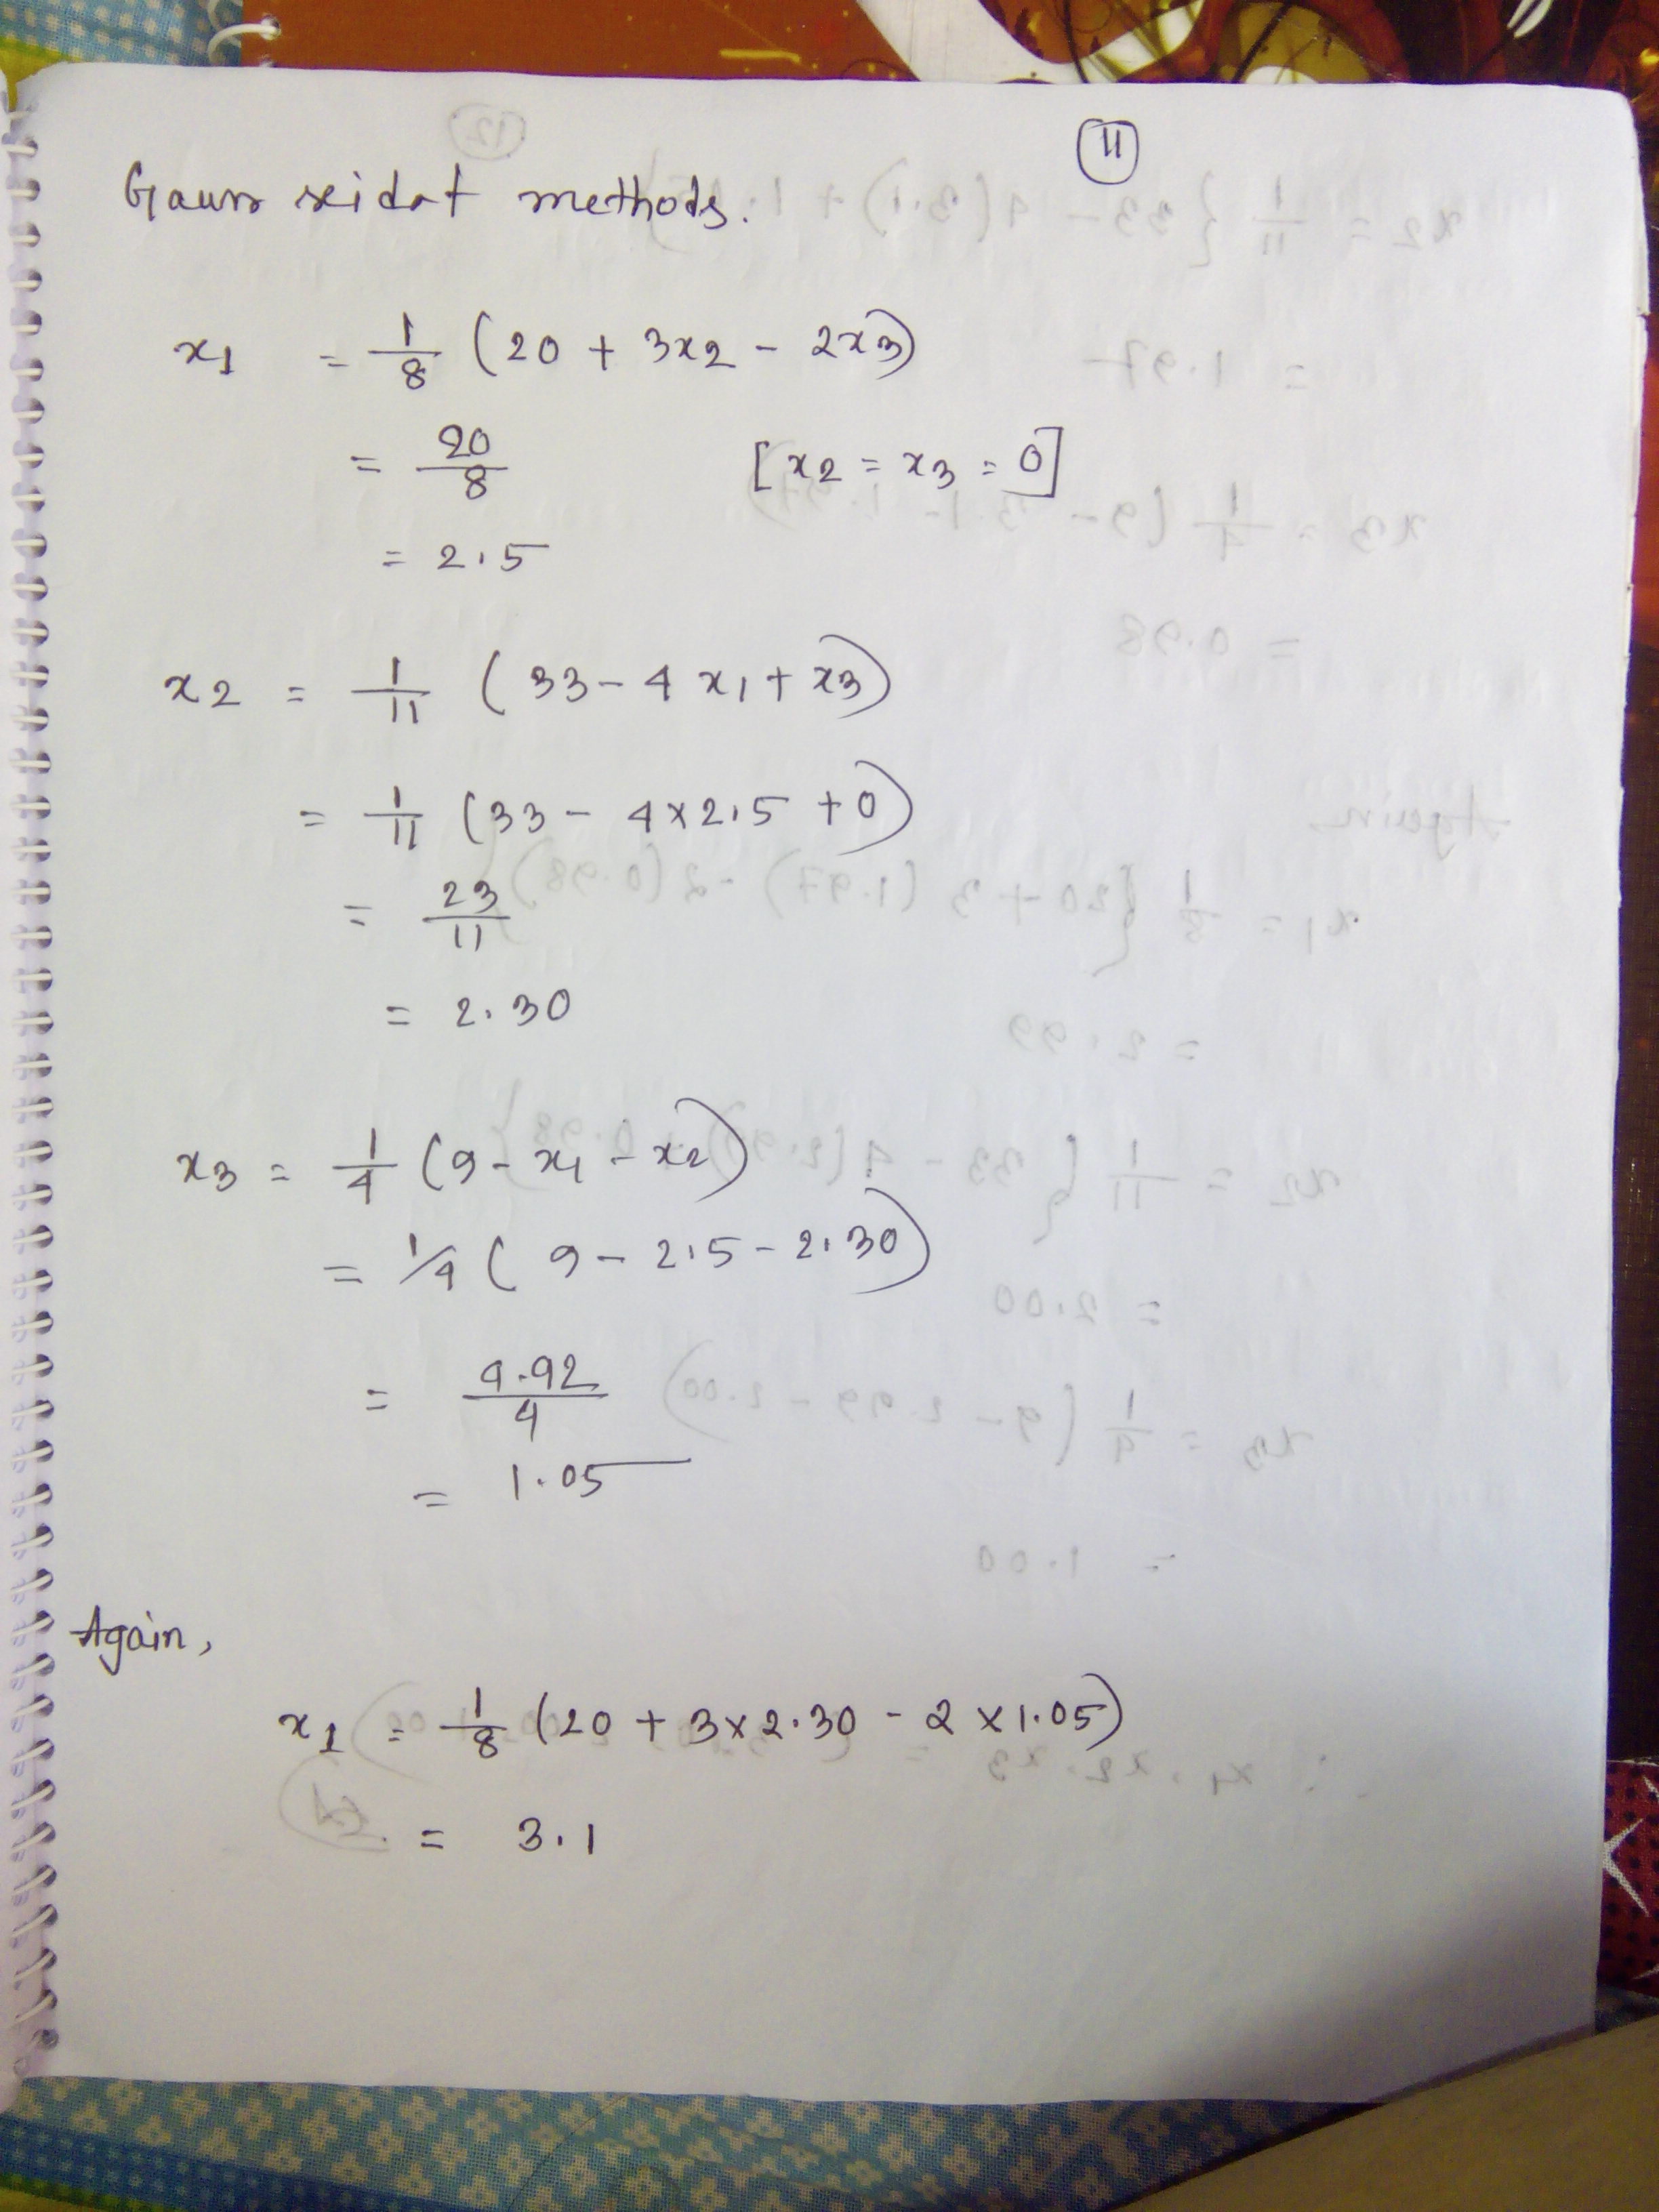 11
Gauss seidal methods.
x1 = 1/8 (20 + 3x2 - 2x3)
= 20/8 [x2 = x3 = 0]
= 2.5
x2 = 1/11 (33 - 4x1 + x3)
= 1/11 (33 - 4×2.5 + 0)
= 23/11
= 2.30
x3 = 1/4 (9 - x1 - x2)
= 1/4 (9 - 2.5 - 2.30)
= 4.42/4
= 1.05
Again,
x1 = 1/8 (20 + 3×2.30 - 2×1.05)
= 3.1